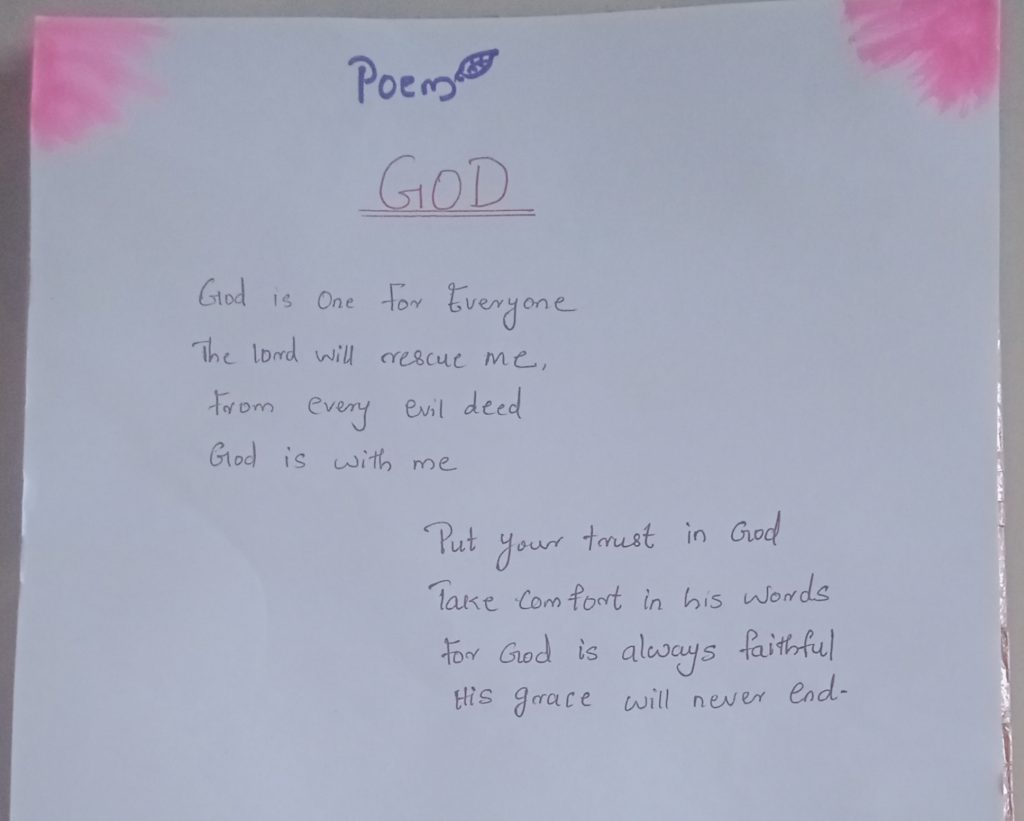 Poem
GOD
God is One for Everyone
The lord will rescue me,
From every evil deed
God is with me
Put your trust in God
Take Comfort in his words
For God is always faithful
His grace will never end-